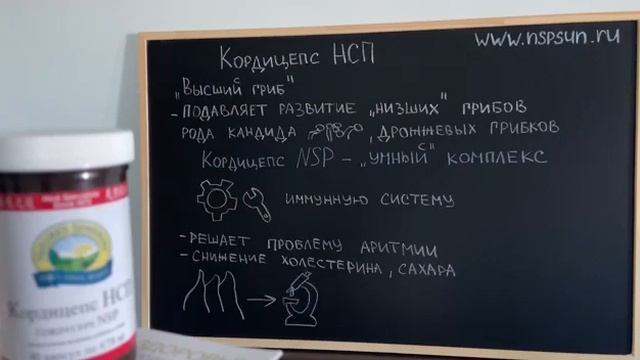 www.nspsun.ru
Кордицепс НСП
„Высший гриб"
- подавляет развитие „низших" грибов
рода кандида , дрожжевых грибков
Кордицепс NSP – „умный" комплекс
иммунную систему
- решает проблему аритмии
- снижение холестерина, сахара
Кордицепс НСП
NSP